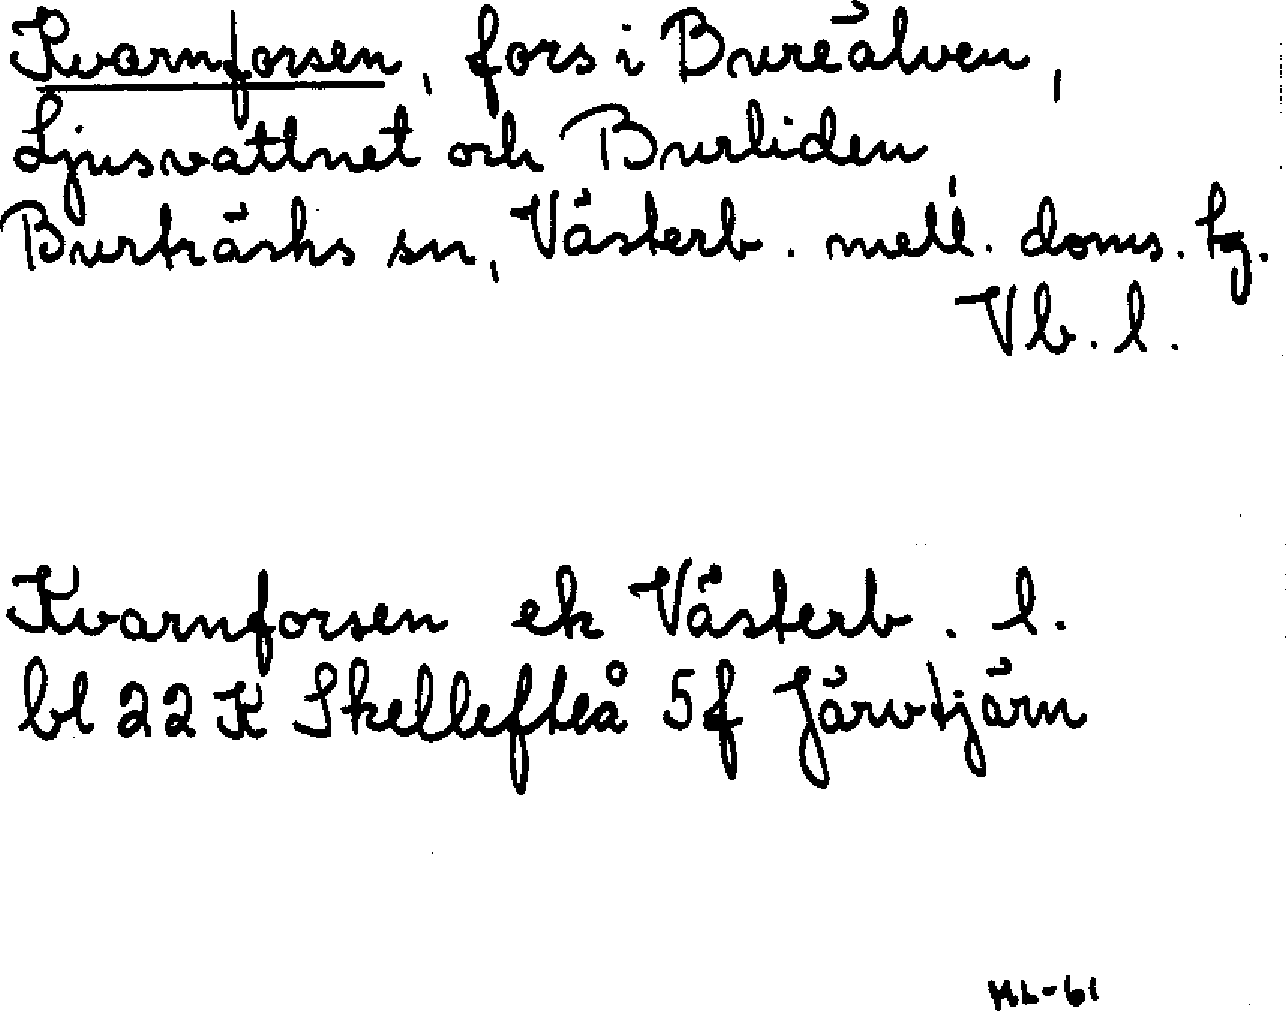 Kvarnforsen, fors i Bureälven,
Ljusvattnet och Burliden,
Burträsks sn, Västerb. mell. doms. tg.
Vb. l.
Kvarnforsen ek Västerb. l.
bl 22 K Skellefteå 5f Järvtjärn
ML-61